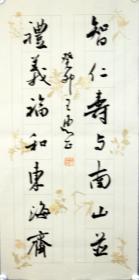 智仁寿与南山並
禮義福和東海齊
癸卯